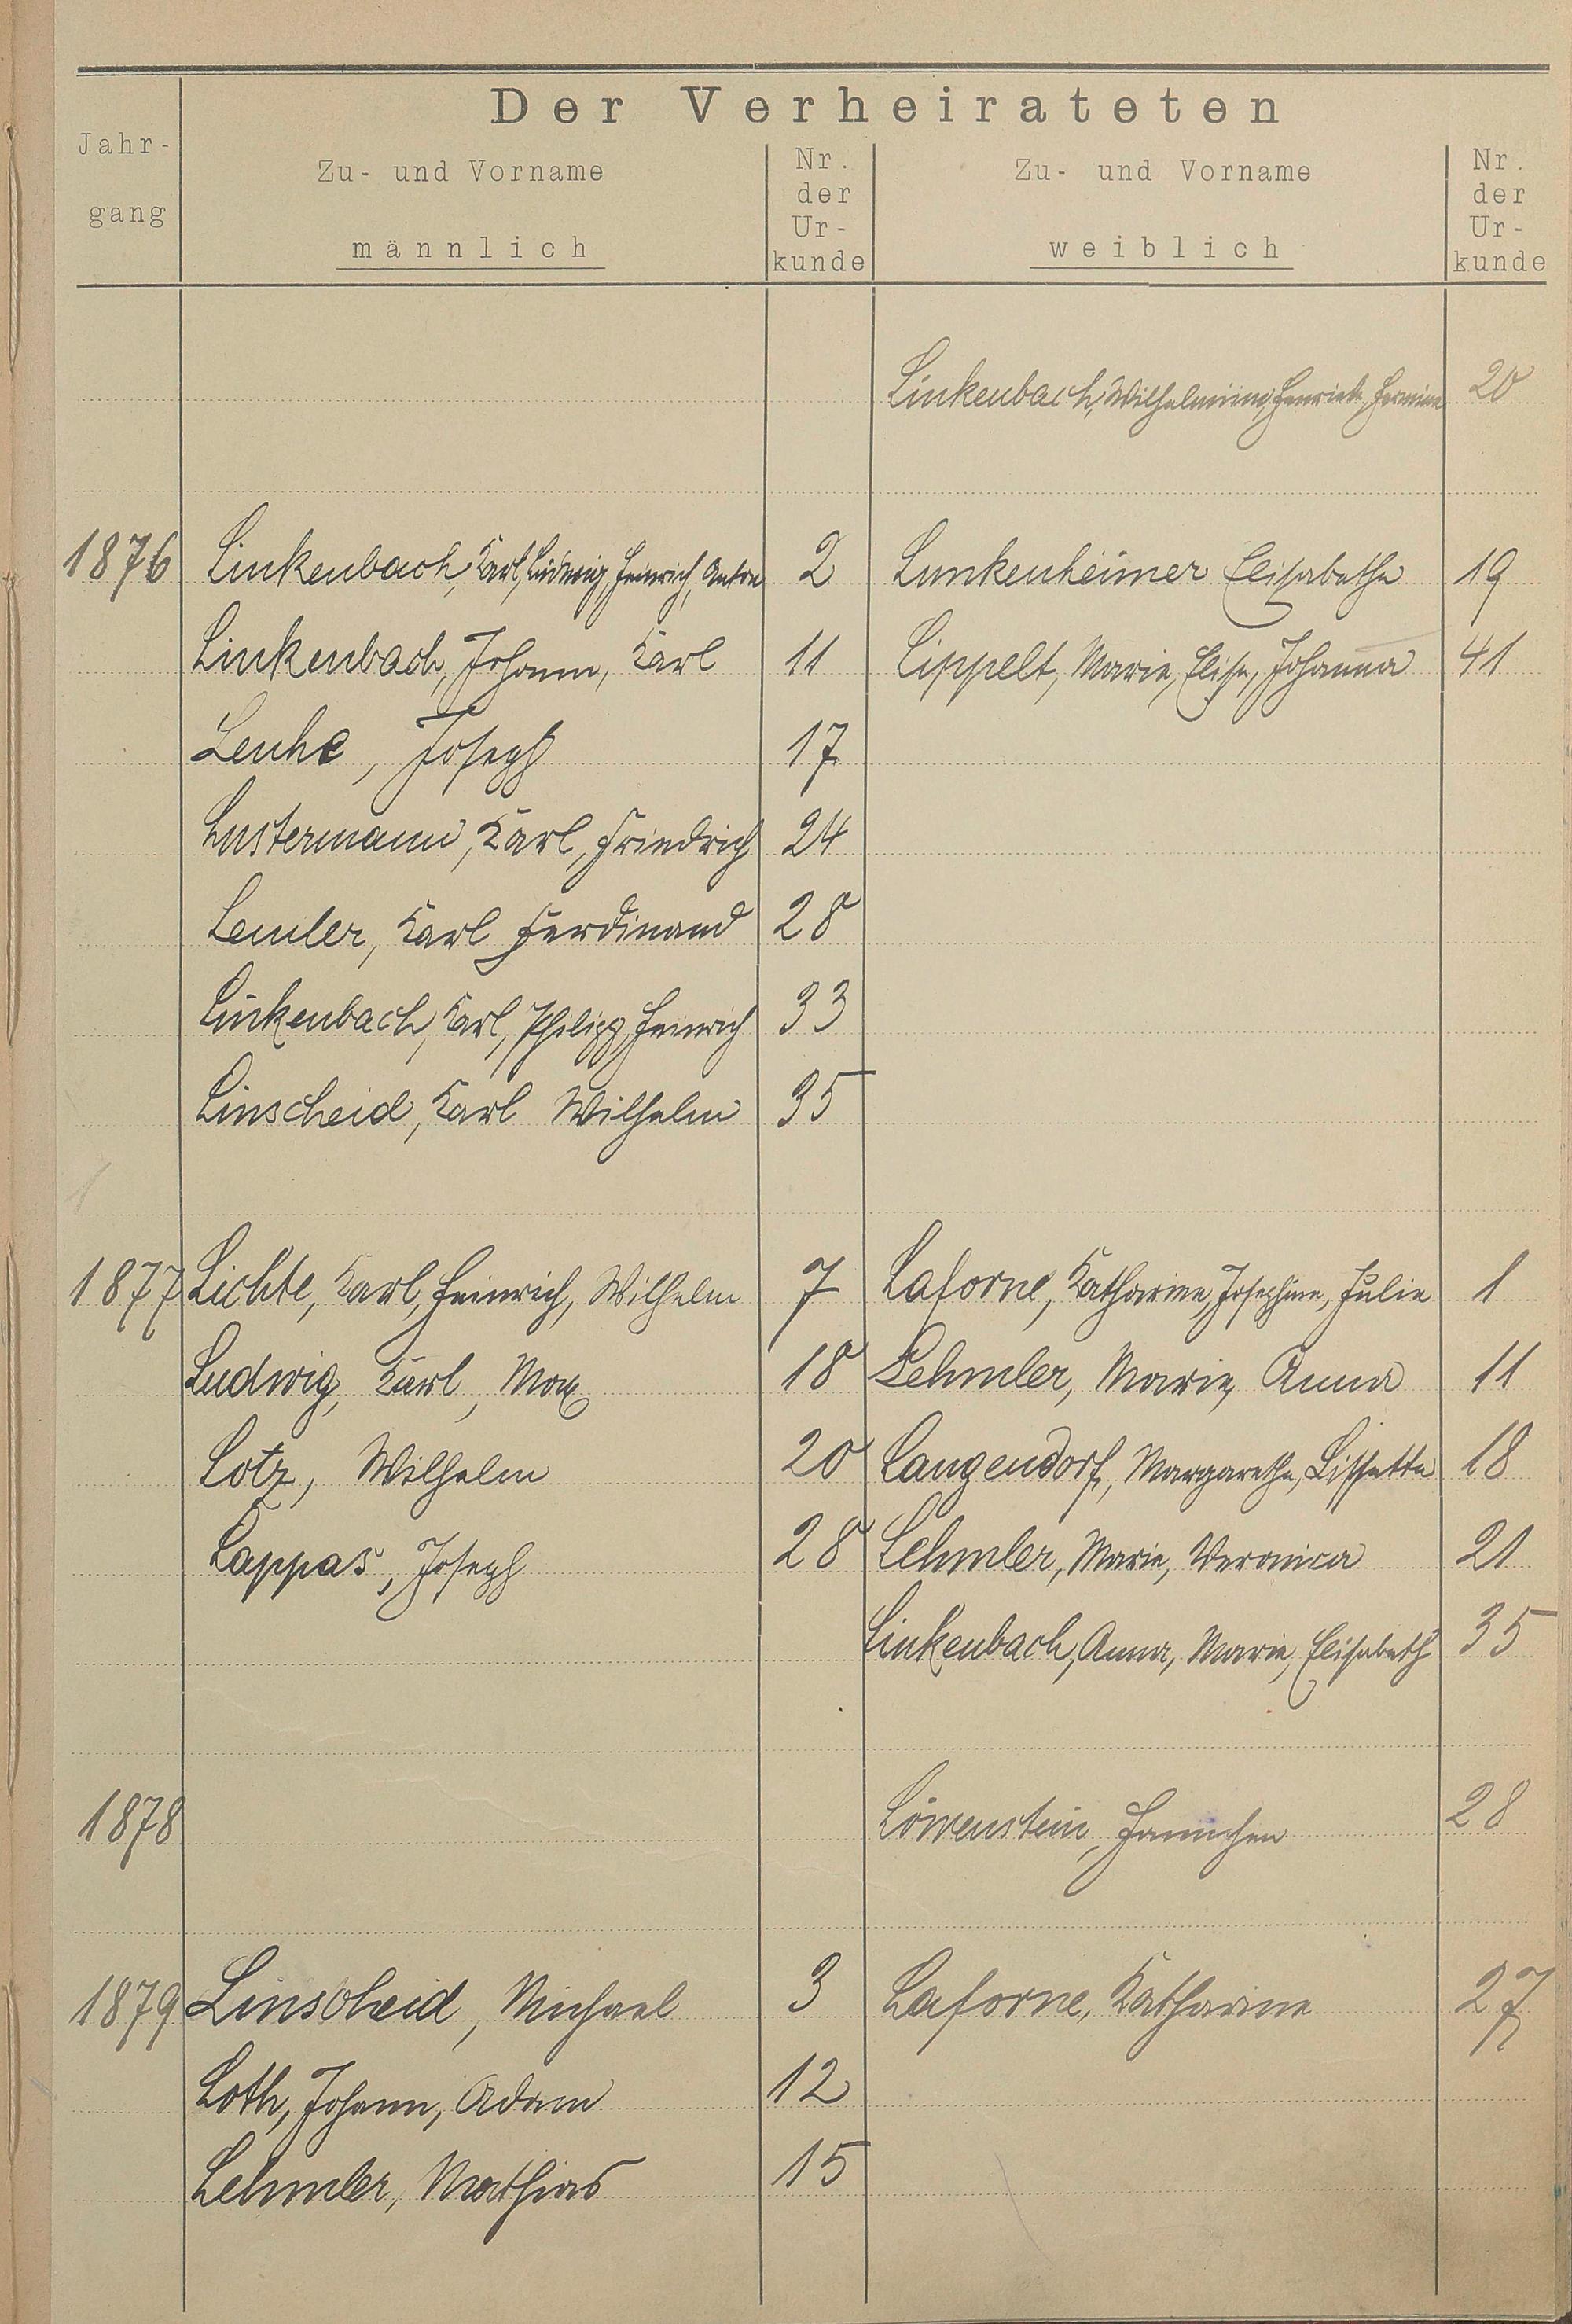 Der Verheirateten
Jahr-gang | Zu- und Vorname männlich | Nr. der Ur-kunde | Zu- und Vorname weiblich | Nr. der Ur-kunde
Linkenbach, Wilhelmine, Henriette, Hermine 20
1876 Linkenbach, Karl, Ludwig, Heinrich, Anton 2 Lunkenheimer Elisabetha 19
Linkenbach, Johann, Karl 11 Lippelt, Marie, Elise, Johanna 41
Lenhe, Joseph 17
Lustermann, Karl, Friedrich 24
Lemler, Karl Ferdinand 28
Linkenbach, Karl, Philipp, Heinrich 33
Linscheid, Karl Wilhelm 35
1877 Lichte, Karl, Heinrich, Wilhelm 7 Laforne, Katharine, Josephine, Julie 1
Ludwig, Karl, Max 18 Lehmler, Marie, Anna 11
Lotz, Wilhelm 20 Langendorf, Margaretha, Lissette 18
Lappas, Joseph 28 Lehmler, Marie, Veronica 21
Linkenbach, Anna, Marie, Elisabeth 35
1878 Löwenstein, Hannchen 28
1879 Linscheid, Michael 3 Laforne, Katharine 27
Loth, Johann, Adam 12
Lehmler, Mathias 15